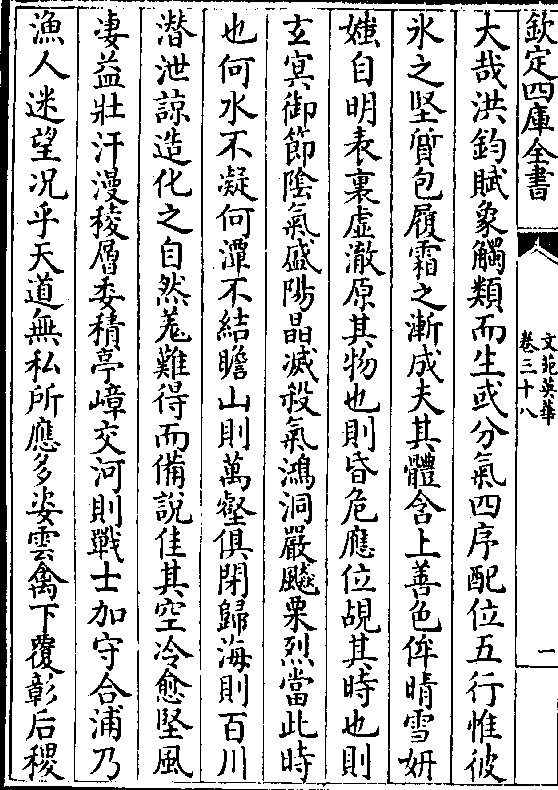 欽定四庫全書
文苑英華
卷三十八
一
大哉洪鈞賦象觸類而生或分氣四序配位五行惟彼
氷之堅質包履霜之漸成夫其體含上善色侔晴雪妍
媸自明表裏虚澈原其物也則昏危應位覘其時也則
玄冥御節隂氣盛陽晶滅殺氣鴻洞嚴飈栗烈當此時
也何水不凝何潭不結瞻山則萬壑俱閉歸海則百川
潜泄諒造化之自然羗難得而備説佳其空冷愈堅風
凄益壯汗漫稜層委積亭嶂交河則戰士加守合浦乃
漁人迷望况乎天道無私所應多姿雲禽下覆彰后稷